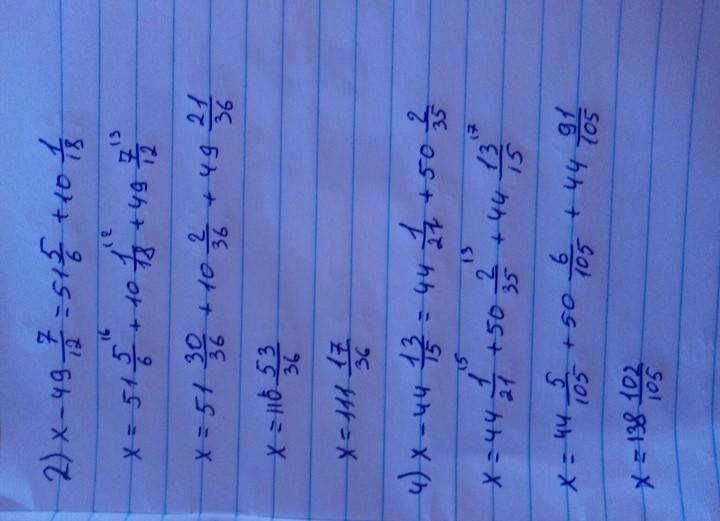 2) x - 49 7/12 = 51 5/6 + 10 1/18
x = 51 5/6 ¹⁶ + 10 1/18 ¹² + 49 7/12 ¹³
x = 51 30/36 + 10 2/36 + 49 21/36
x = 110 53/36
x = 111 17/36
4) x - 44 13/15 = 44 1/21 + 50 2/35
x = 44 1/21 ¹⁵ + 50 2/35 ¹³ + 44 13/15 ¹⁷
x = 44 5/105 + 50 6/105 + 44 91/105
x = 138 102/105